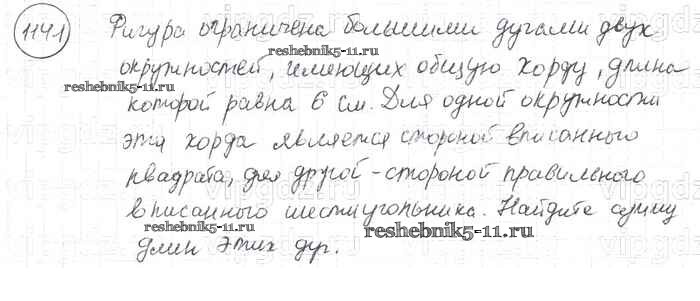 1141) Фигура ограничена большими дугами двух
reshebnik5-11.ru
окружностей, имеющих общую хорду, длина
reshebnik5-11.ru
которой равна 6 см. Для одной окружности
эта хорда является стороной вписанного
квадрата, для другой - стороной правильного
вписанного шестиугольника. Найдите сумму
длин этих дуг.
reshebnik5-11.ru